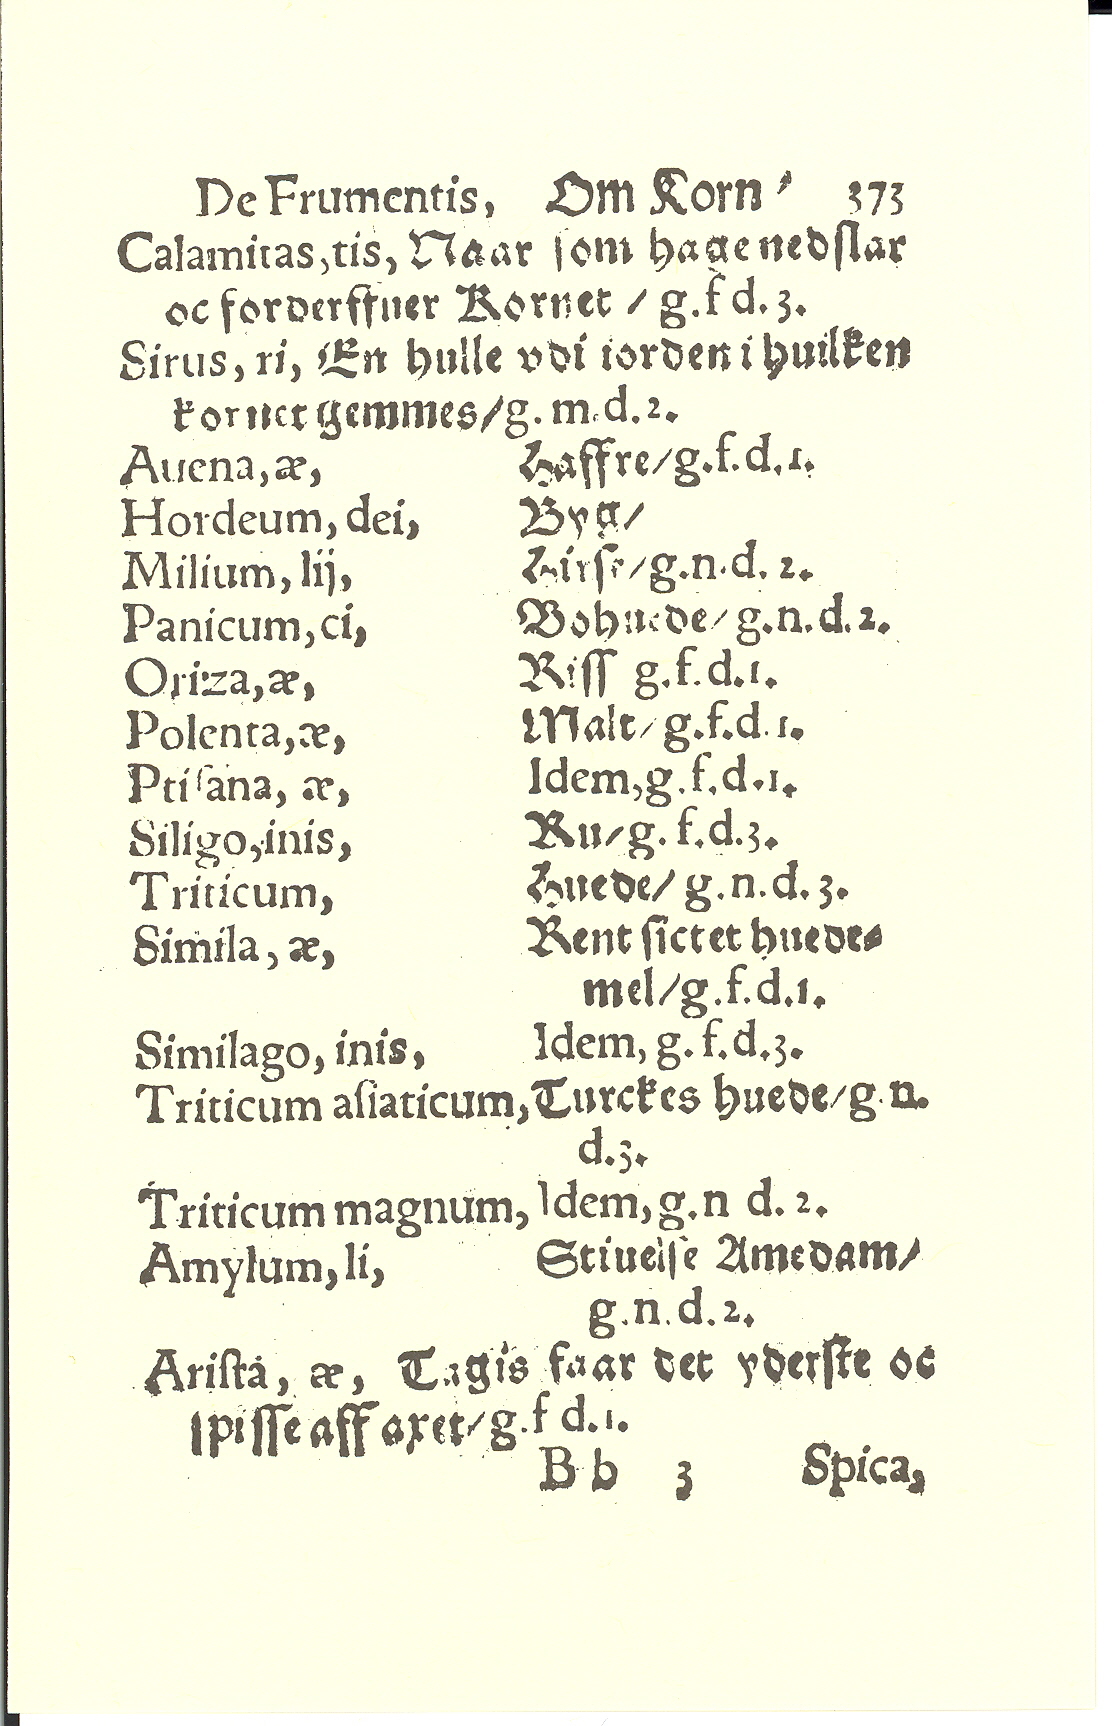 De Frumentis, Om Korn / 373
Calamitas, tis, Naar som hage nedslar
oc forderffuer Kornet / g. f d. 3.
Sirus, ri, En hulle vdi iorden i huilken
kornet gemmes / g. m. d. 2.
Auena, æ, Haffre / g. f. d. 1.
Hordeum, dei, Byg /
Milium, lij, Hirse / g. n. d. 2.
Panicum, ci, Bohuede / g. n. d. 2.
Oriza, æ, Riss g. f. d. 1.
Polenta, æ, Malt / g. f. d. 1.
Ptiſana, æ, Idem, g. f. d. 1.
Siligo, inis, Ru / g. f. d. 3.
Triticum, Huede / g. n. d. 3.
Simila, æ, Rent sictet huede⸗
mel / g. f. d. 1.
Similago, inis, Idem, g. f. d. 3.
Triticum aſiaticum, Turckes huede / g. n.
d. 3.
Triticum magnum, Idem, g. n d. 2.
Amylum, li, Stiuelse Amedam /
g. n. d. 2.
Ariſta, æ, Tagis faar det yderste oc
spisse aff axet / g. f d. 1.
B b 3 Spica,